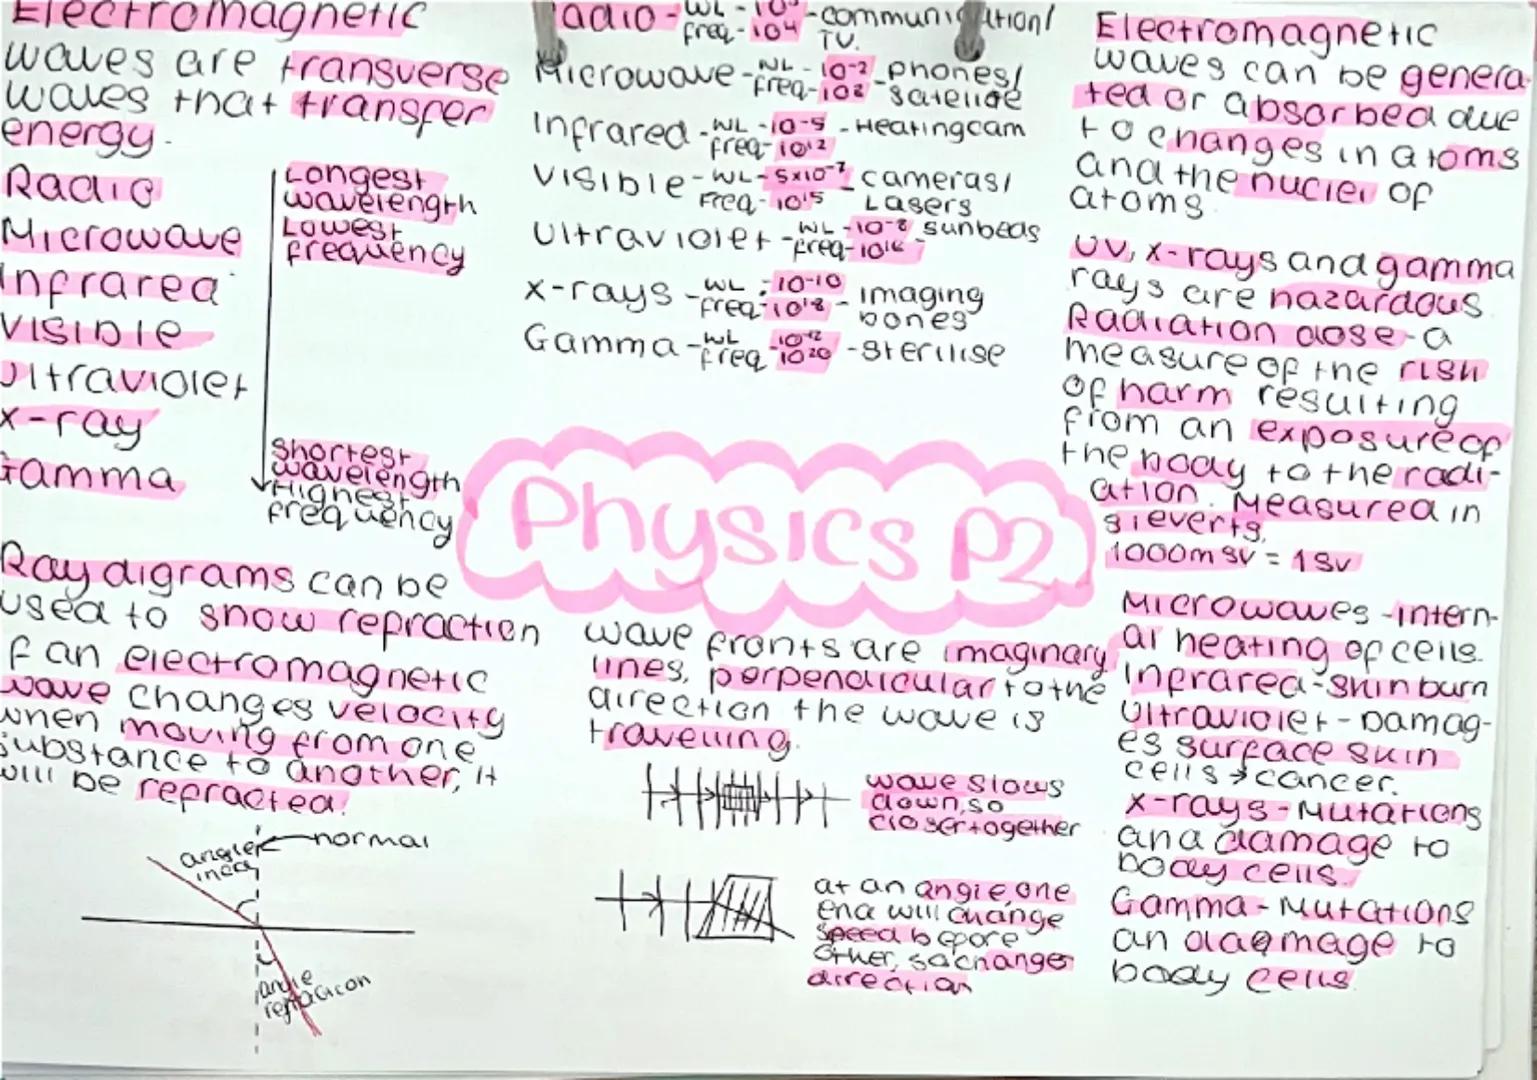 Electromagnetic
waves are transverse
waves that transfer
energy.
Radio
Microwave
Infrared
Visible
Ultraviolet
X-ray
Gamma
Longest
wavelength
Lowest
frequency
Shortest
wavelength
Highest
frequency
Ray digrams can be
used to show refraction
If an electromagnetic
wave changes velocity
when moving from one
substance to another, it
will be refracted.
normal
angle
angle
refraction
Radio - WL - - communication/
freq - 10⁴ TV.
Microwave - WL - 10⁻² - phones/
freq - 10⁸ satelide
Infrared - WL - 10⁻⁵ - Heating cam
freq - 10¹²
Visible - WL - 5x10⁻⁷ - cameras/
Freq - 10¹⁵ Lasers
Ultraviolet - WL - 10⁻⁸ sunbeds
freq - 10¹⁶
X-rays - WL - 10⁻¹⁰ - imaging
freq - 10¹⁸ bones
Gamma - WL 10⁻¹² - sterilise
freq 10²⁰
Physics P2
wave fronts are imaginary
lines, perpendicular to the
direction the wave is
travelling.
wave slows
down, so
closer together
at an angle, one
end will change
speed before
other, so changes
direction
Electromagnetic
waves can be genera-
ted or absorbed due
to changes in atoms
and the nuclei of
atoms
UV, x-rays and gamma
rays are hazardous.
Radiation dose - a
measure of the risk
of harm resulting
from an exposure of
the body to the radi-
ation. Measured in
sieverts.
1000msv = 1sv
Microwaves - intern-
al heating of cells.
Infrared - skin burn
Ultraviolet - Damag-
es surface skin
cells → cancer.
X-rays - Mutations
and damage to
body cells.
Gamma - Mutations
an daemage to
body cells.